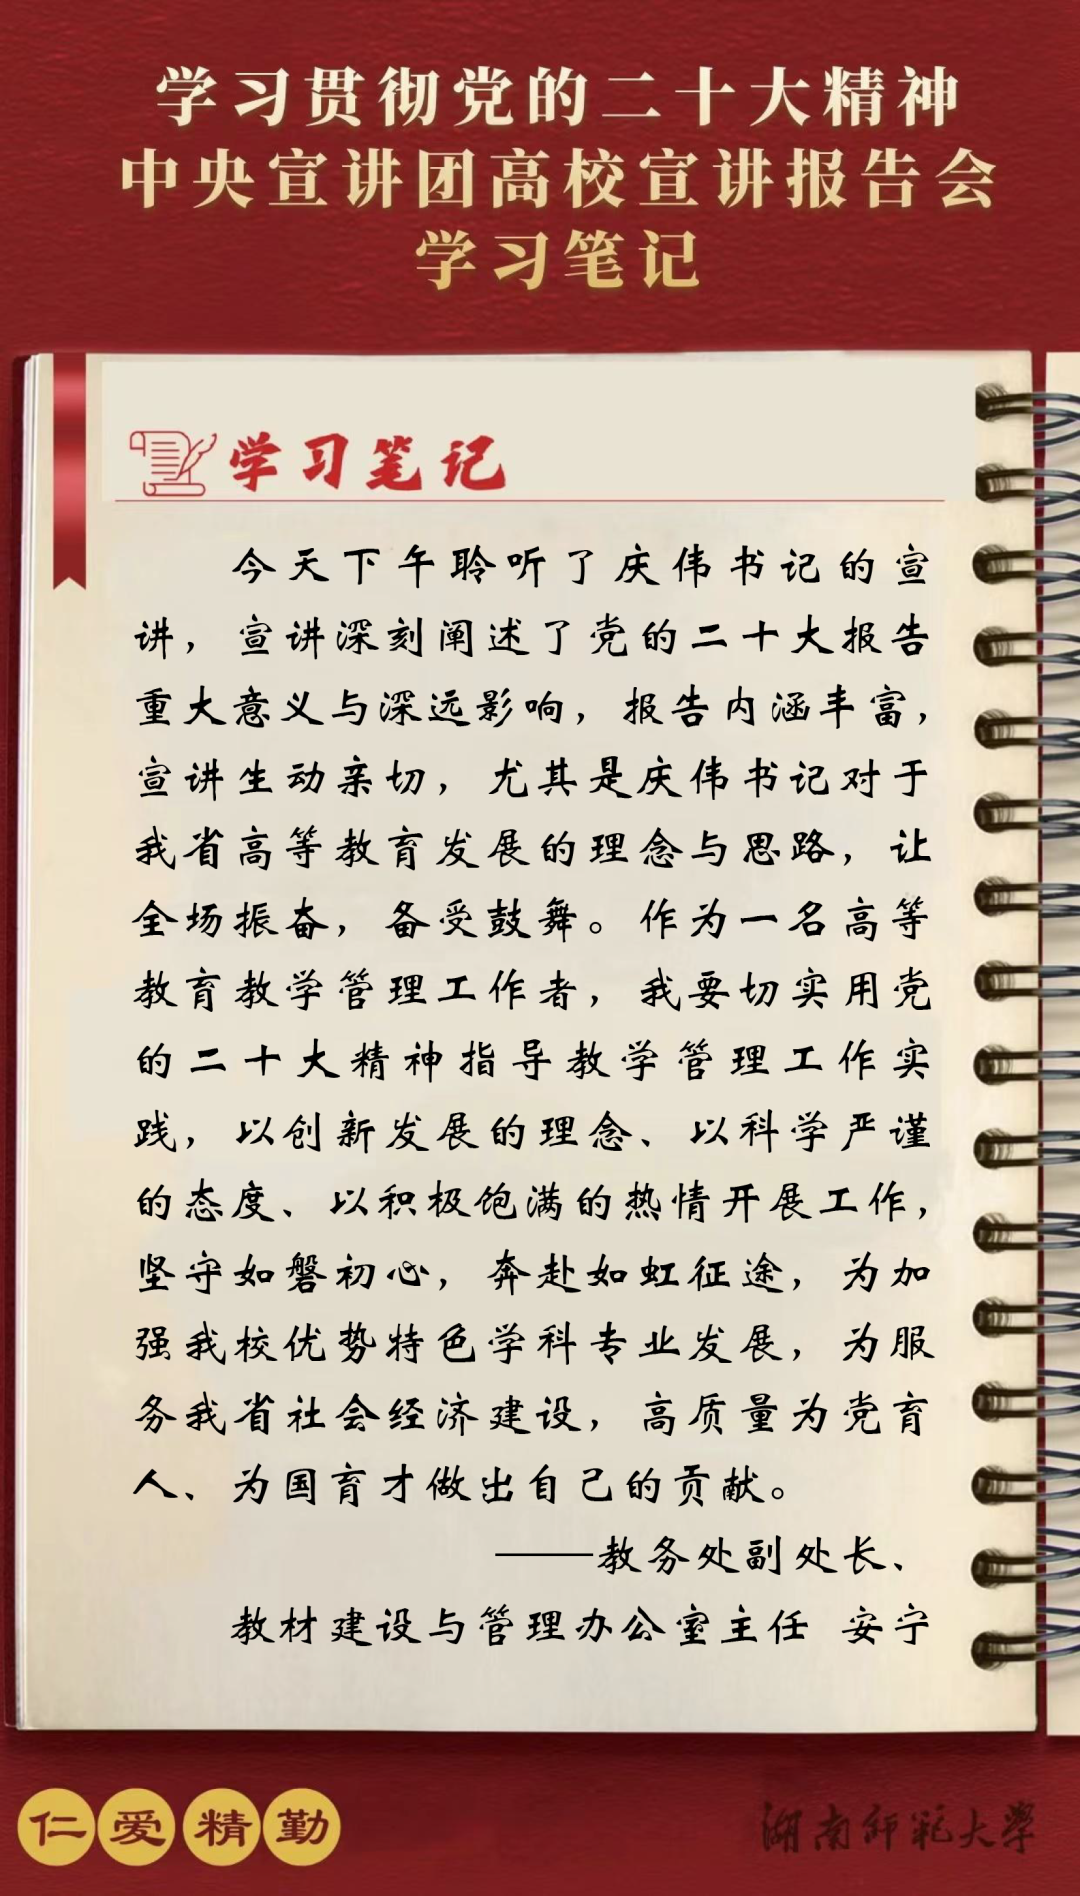 学习贯彻党的二十大精神
中央宣讲团高校宣讲报告会
学习笔记
学习笔记
今天下午聆听了庆伟书记的宣
讲，宣讲深刻阐述了党的二十大报告
重大意义与深远影响，报告内涵丰富，
宣讲生动亲切，尤其是庆伟书记对于
我省高等教育发展的理念与思路，让
全场振奋，备受鼓舞。作为一名高等
教育教学管理工作者，我要切实用党
的二十大精神指导教学管理工作实
践，以创新发展的理念、以科学严谨
的态度、以积极饱满的热情开展工作，
坚守如磐初心，奔赴如虹征途，为加
强我校优势特色学科专业发展，为服
务我省社会经济建设，高质量为党育
人、为国育才做出自己的贡献。
——教务处副处长、
教材建设与管理办公室主任 安宁
仁爱精勤
湖南师范大学